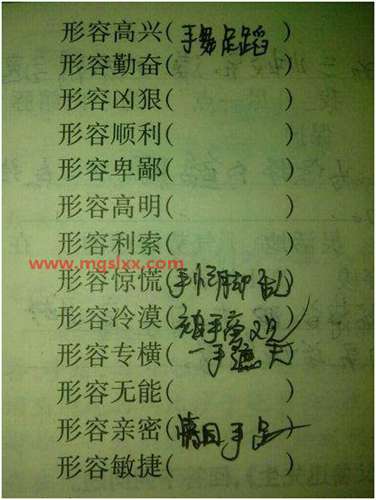 形容高兴(手舞足蹈)
形容勤奋( )
形容凶狠( )
形容顺利( )
形容卑鄙( )
形容高明( )
形容利索( )
www.mgslxx.com
形容惊慌(手忙脚乱)
形容冷漠( 手旁观)
形容专横(一手遮天)
形容无能( )
形容亲密(情同手足)
形容敏捷( )